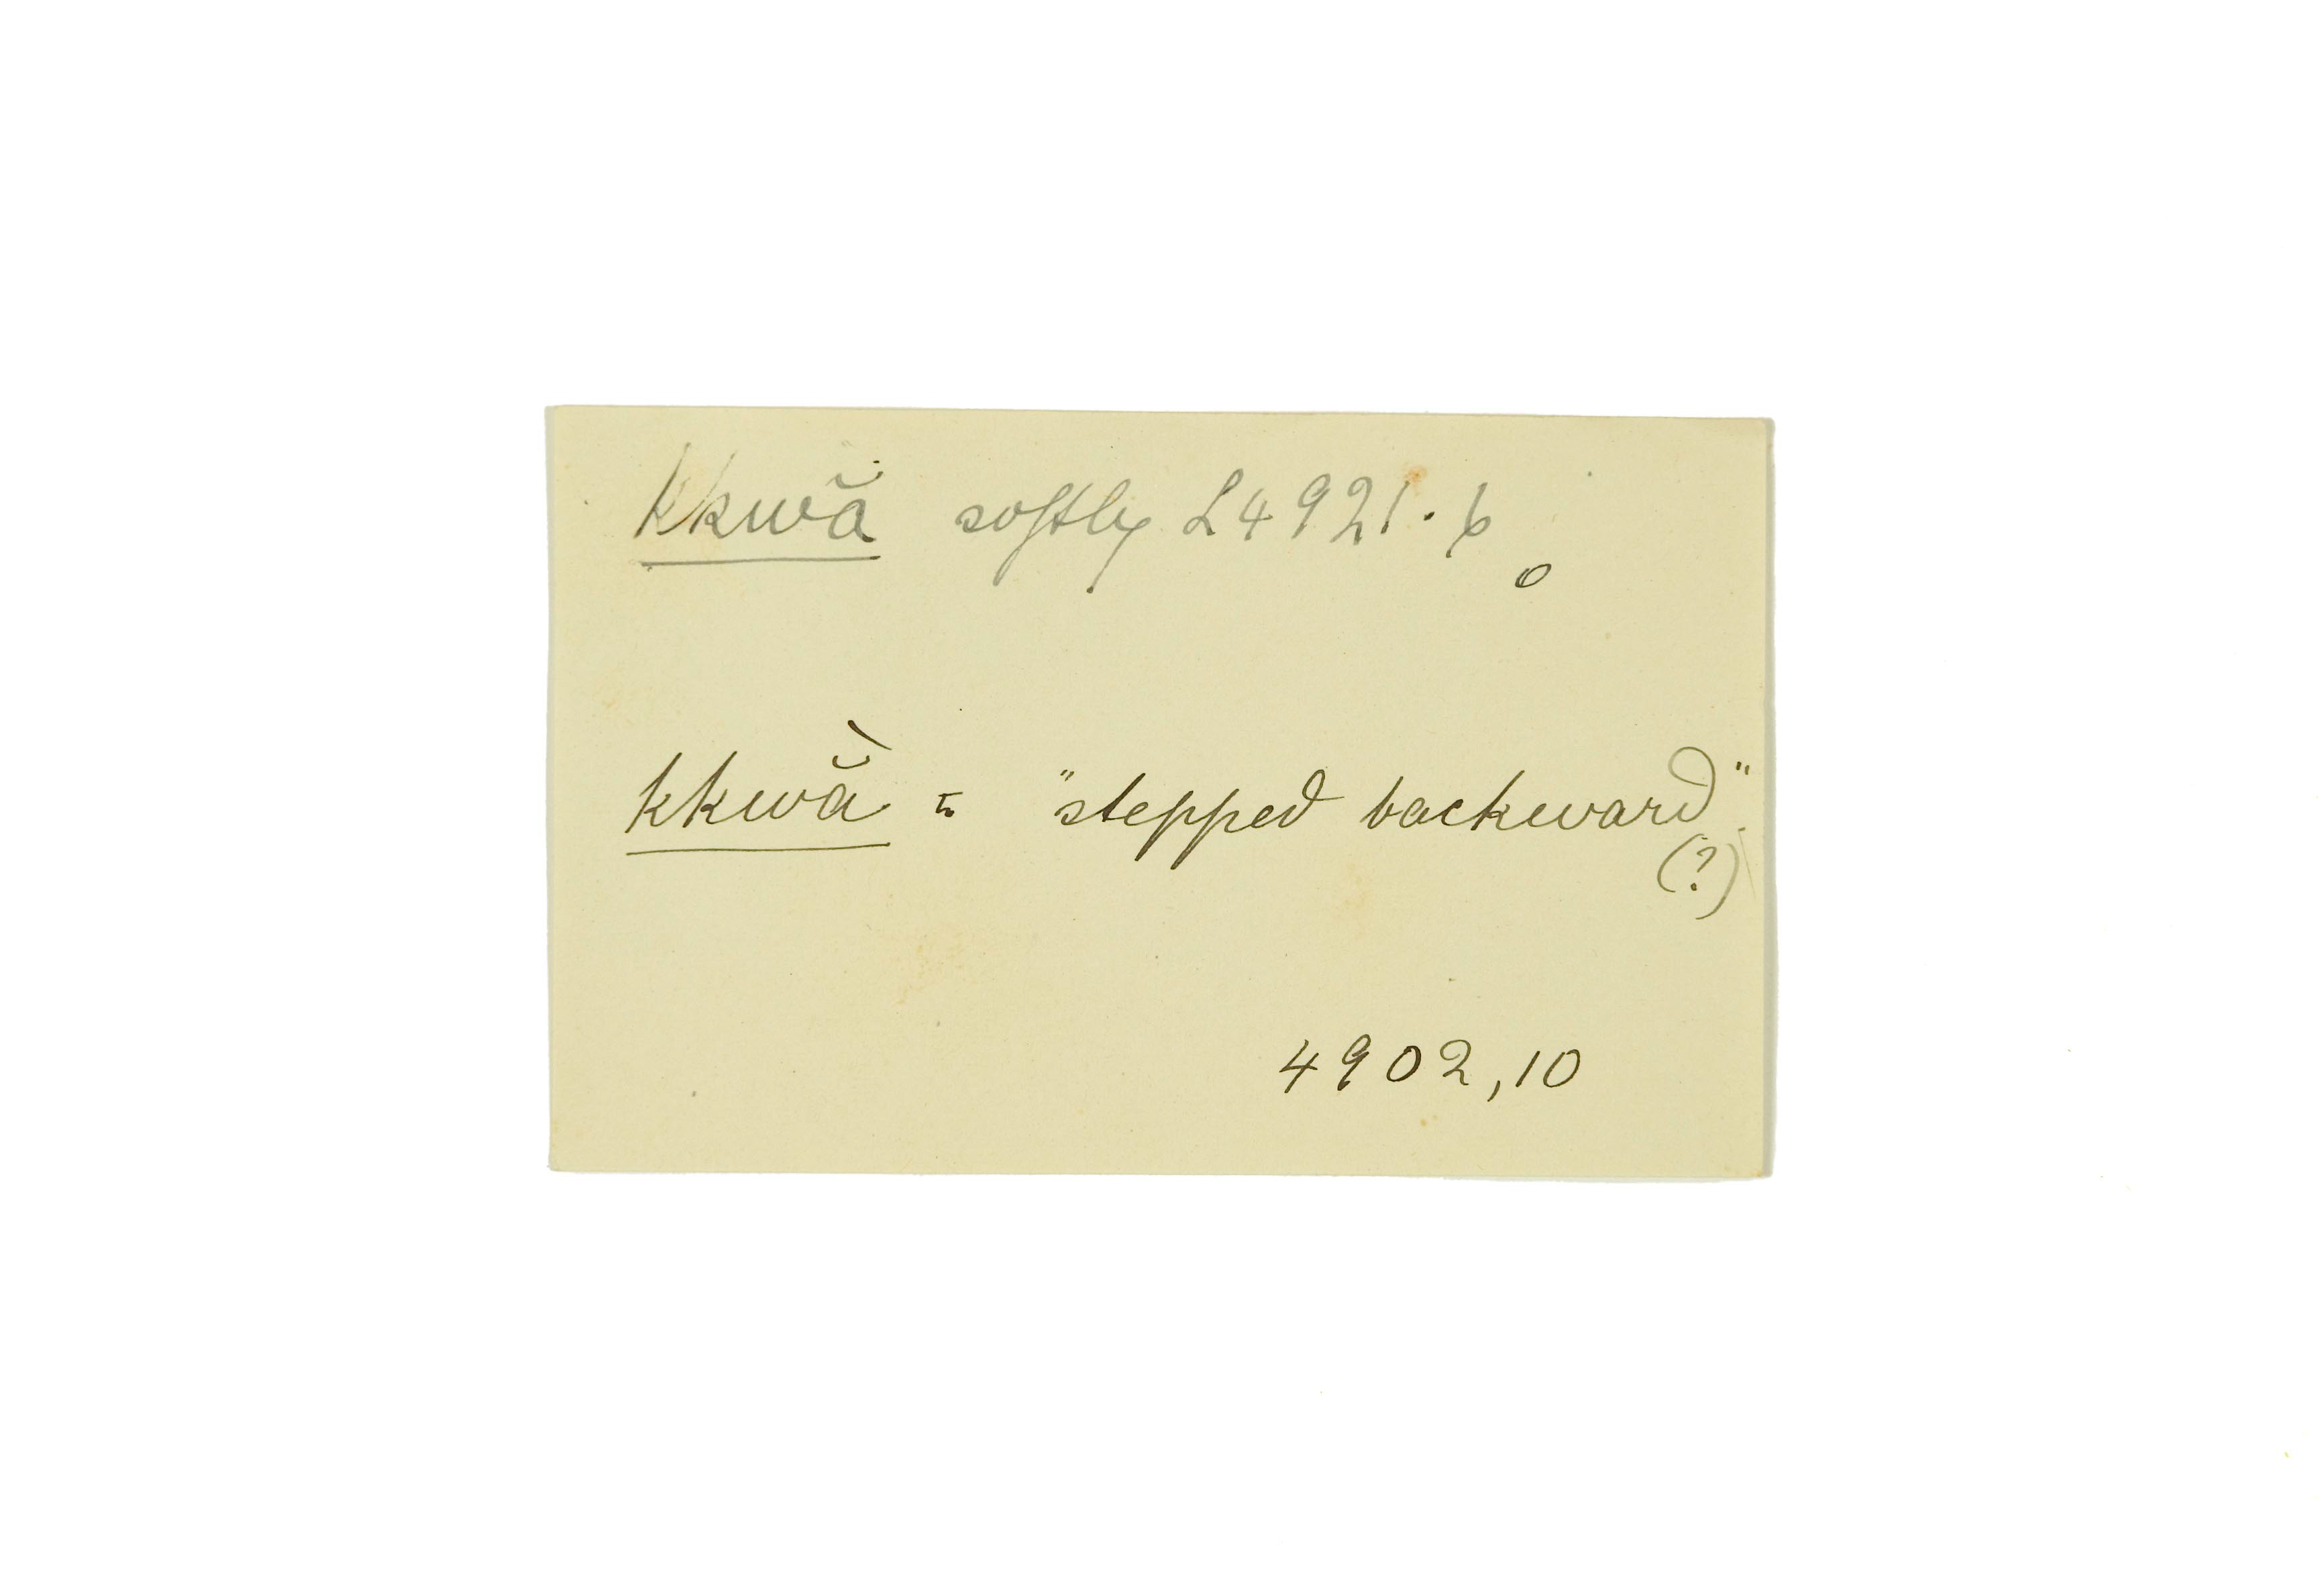 kkwä̆ softly L4921.6
kkwā̆ = "stepped backward".
(?)
4902,10